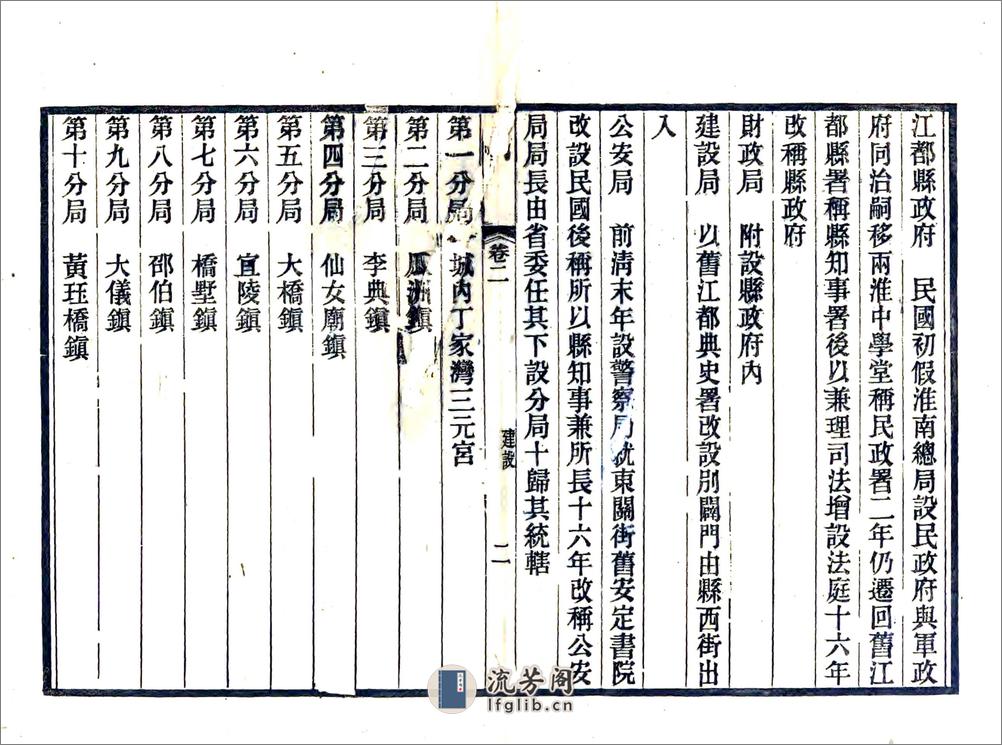 江都縣政府　民國初假淮南總局設民政府與軍政
府同治嗣移兩淮中學堂稱民政署二年仍遷回舊江
都縣署稱縣知事署後以兼理司法增設法庭十六年
改稱縣政府
財政局　附設縣政府內
建設局　以舊江都典史署改設別闢門由縣西街出
入
公安局　前清末年設警察局就東關街舊安定書院
改設民國後稱所以縣知事兼所長十六年改稱公安
局局長由省委任其下設分局十歸其統轄
卷二　建設　二
第一分局　城內丁家灣三元宮
第二分局　瓜洲鎮
第三分局　李典鎮
第四分局　仙女廟鎮
第五分局　大橋鎮
第六分局　宜陵鎮
第七分局　橋墅鎮
第八分局　邵伯鎮
第九分局　大儀鎮
第十分局　黃玨橋鎮
流芳阁
lfglib.cn